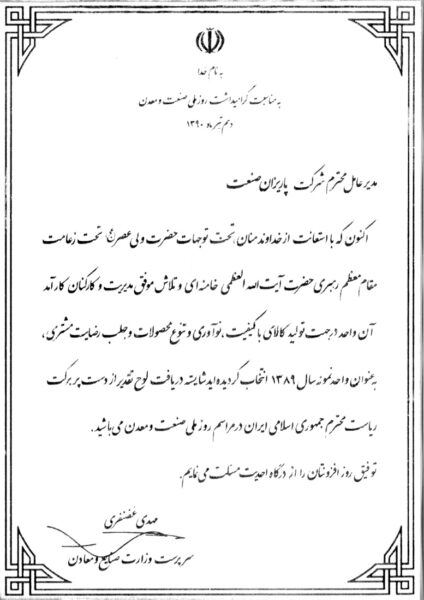 به نام خدا
به مناسبت گرامیداشت روز ملی صنعت و معدن
دهم تیر ماه ۱۳۹۰
مدیر عامل محترم شرکت پاریزان صنعت
اکنون که با استعانت از خداوند منان، تحت توجهات حضرت ولی عصر(عج) تحت زعامت
مقام معظم رهبری حضرت آیت الله العظمی خامنه ای و تلاش موفق مدیریت و کارکنان کارآمد
آن واحد در جهت تولید کالای با کیفیت، نوآوری و تنوع محصولات و جلب رضایت مشتری،
به عنوان واحد نمونه سال ۱۳۸۹ انتخاب گردیده اید شایسته دریافت لوح تقدیر از دست پر برکت
ریاست محترم جمهوری اسلامی ایران در مراسم روز ملی صنعت و معدن می باشید.
توفیق روز افزونتان را از درگاه احدیت مسئلت می نمایم.
مهدی غضنفری
سرپرست وزارت صنایع و معادن